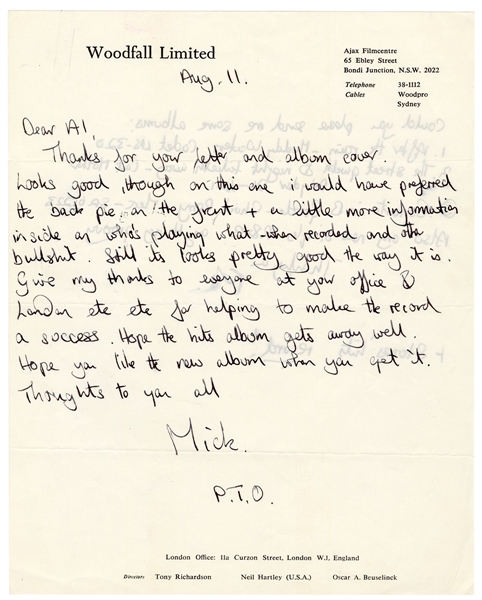 Woodfall Limited
Ajax Filmcentre
65 Ebley Street
Bondi Junction, N.S.W. 2022
Telephone 38-1112
Cables Woodpro
Sydney
Aug. 11.
Dear Al,
Thanks for your letter and album cover.
Looks good, though on this one i would have preferred
the back pic, on the front + a little more information
inside on who's playing what - when recorded and other
bullshit. Still its looks pretty good the way it is.
Give my thanks to everyone at your office &
London etc etc for helping to make the record
a success. Hope the hits album gets away well.
Hope you like the new album when you get it.
Thoughts to you all
Mick.
P.T.O.
London Office: 11a Curzon Street, London W.1. England
Directors Tony Richardson Neil Hartley (U.S.A.) Oscar A. Beuselinck